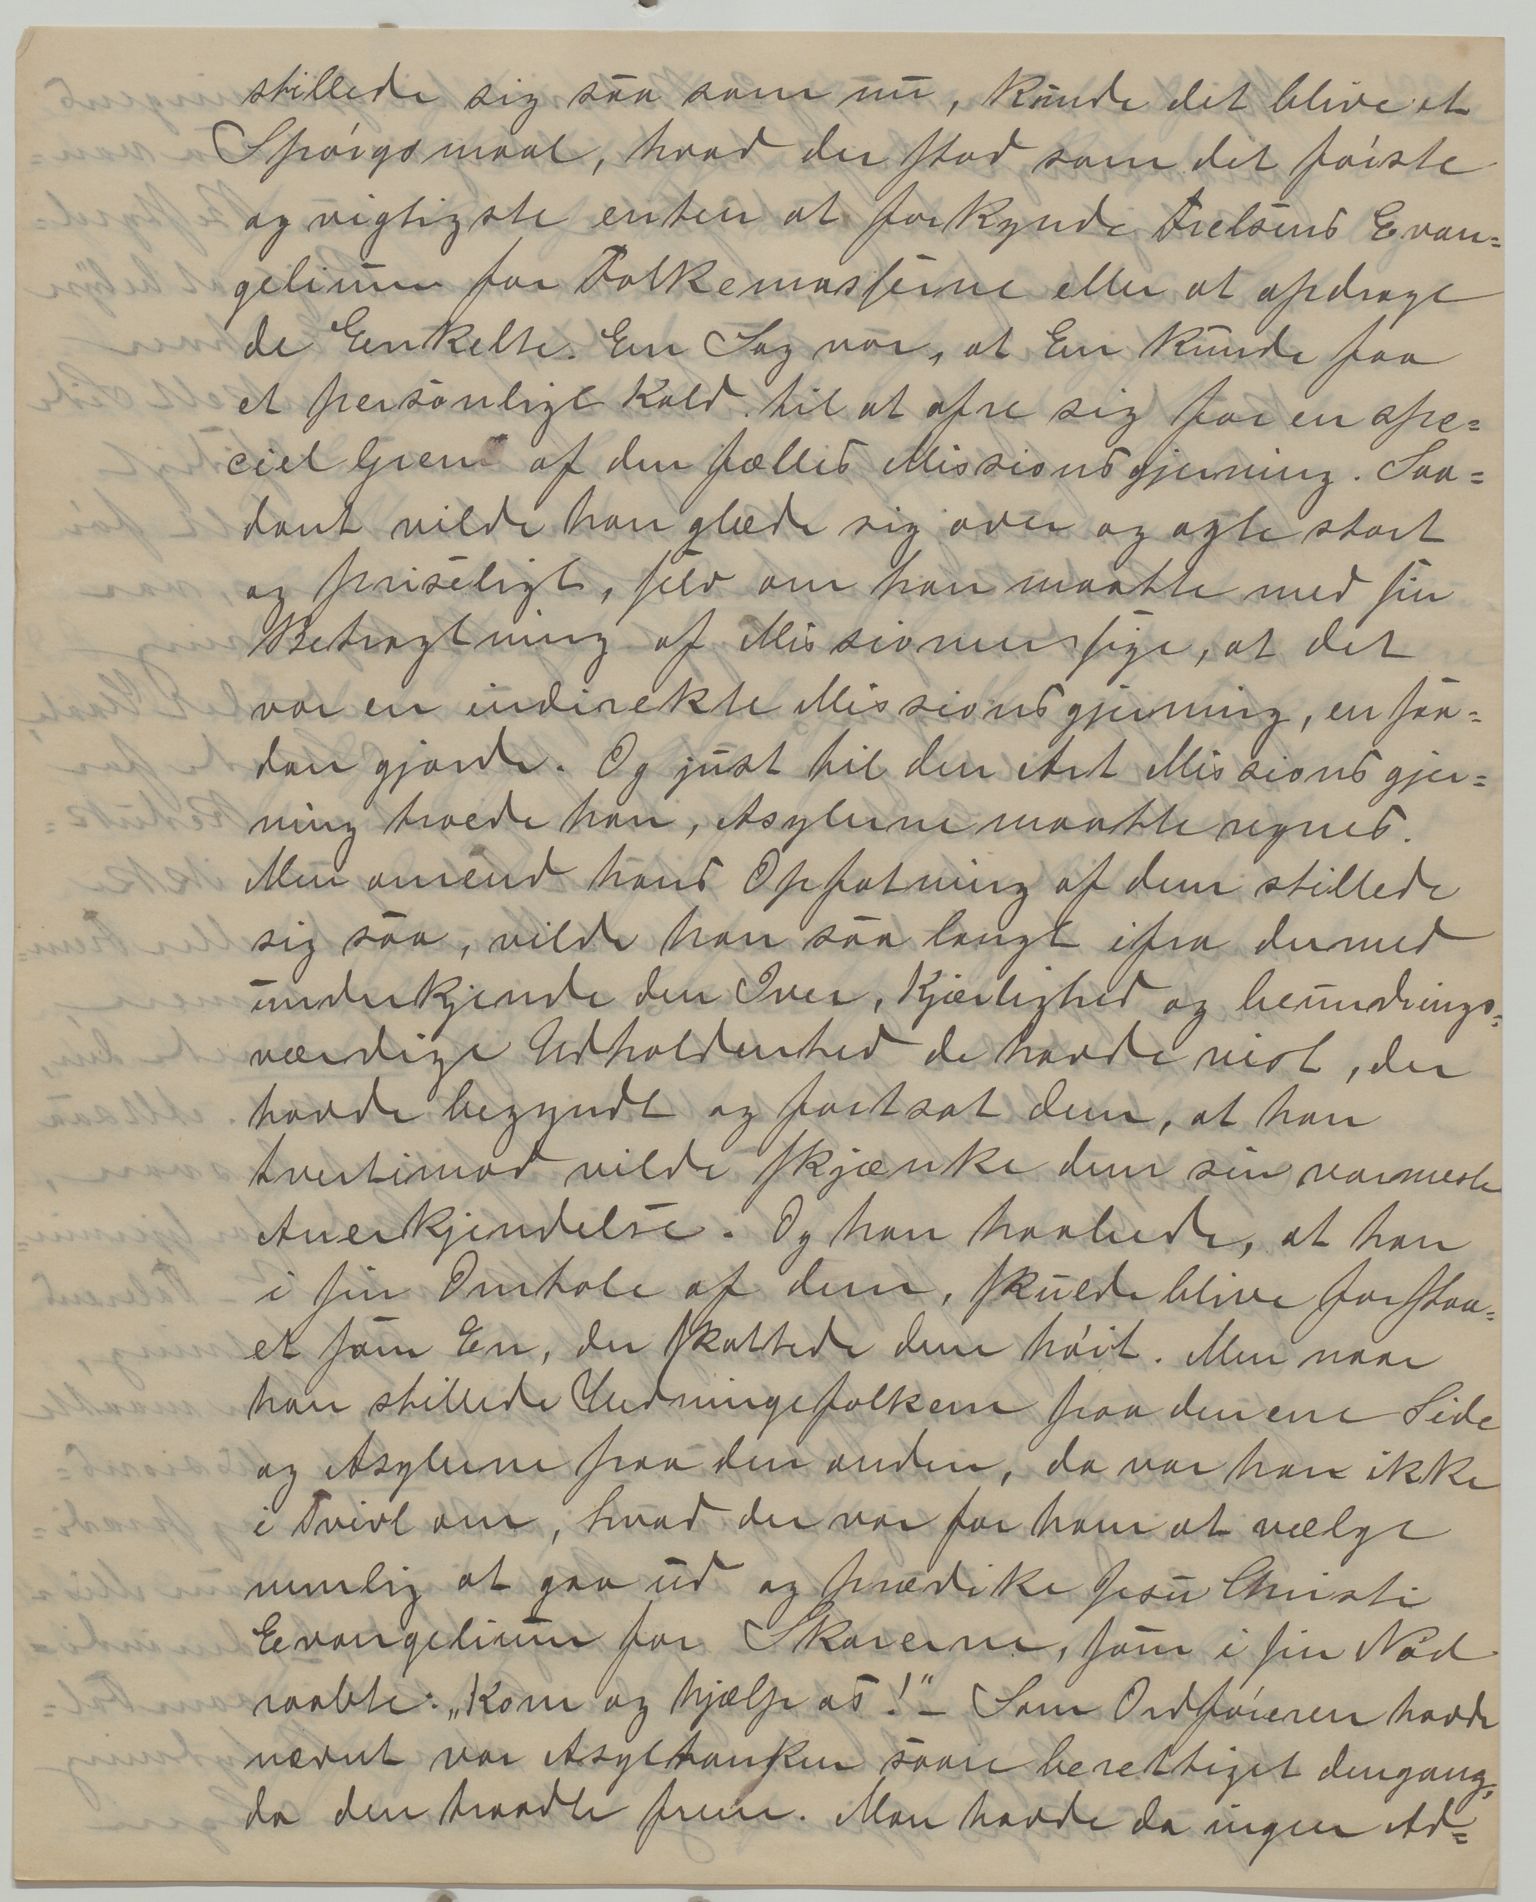 stillede sig saa som nu, kunde det blive et
Spórgsmaal, hvad der stod som det fórste
og vigtigste enten at forkynde Frelsens Evan=
gelium for Folkemasserne eller at opdrage
de Enkelte. En Sag var, at En kunde faa
et personligt Kald til at ofre sig for en spe=
ciel Gren af den fælles Missionsgjerning. Saa=
dant vilde han glæde sig over og agte stort
og priseligt, selv om han maatte med sin
Betragtning af Missionen sige, at det
var en indirekte Missionsgjerning, en saa=
dan gjorde. Og just til den Art Missionsgjer=
ning troede han, Asylerne maatte regnes.
Men omend hans Opfatning af dem stillede
sig saa, vilde han saa langt ifra dermed
underkjende den Iver, Kjærlighed og beundrings=
værdige Udholdenhed de havde vist, der
havde begyndt og fortsat dem, at han
tvertimod vilde skjænke dem sin varmeste
Anerkjendelse. Og han haabede, at han
i sin Omtale af dem, skulde blive forstaa=
et som En, der skattede dem hóit. Men naar
han stillede Hedningefolkene paa den ene Side
og Asylerne paa den anden, da var han ikke
i Tvivl om, hvad der var for ham at vælge
nemlig at gaa ud og prædike Jesu Christi
Evangelium for Skarerne, som i sin Nód
raabte: „Kom og hjælp os!" – Som Ordfóreren havde
nævnt var Asyltanken saare berettiget dengang,
da den traadte frem. Man havde da ingen Ad=